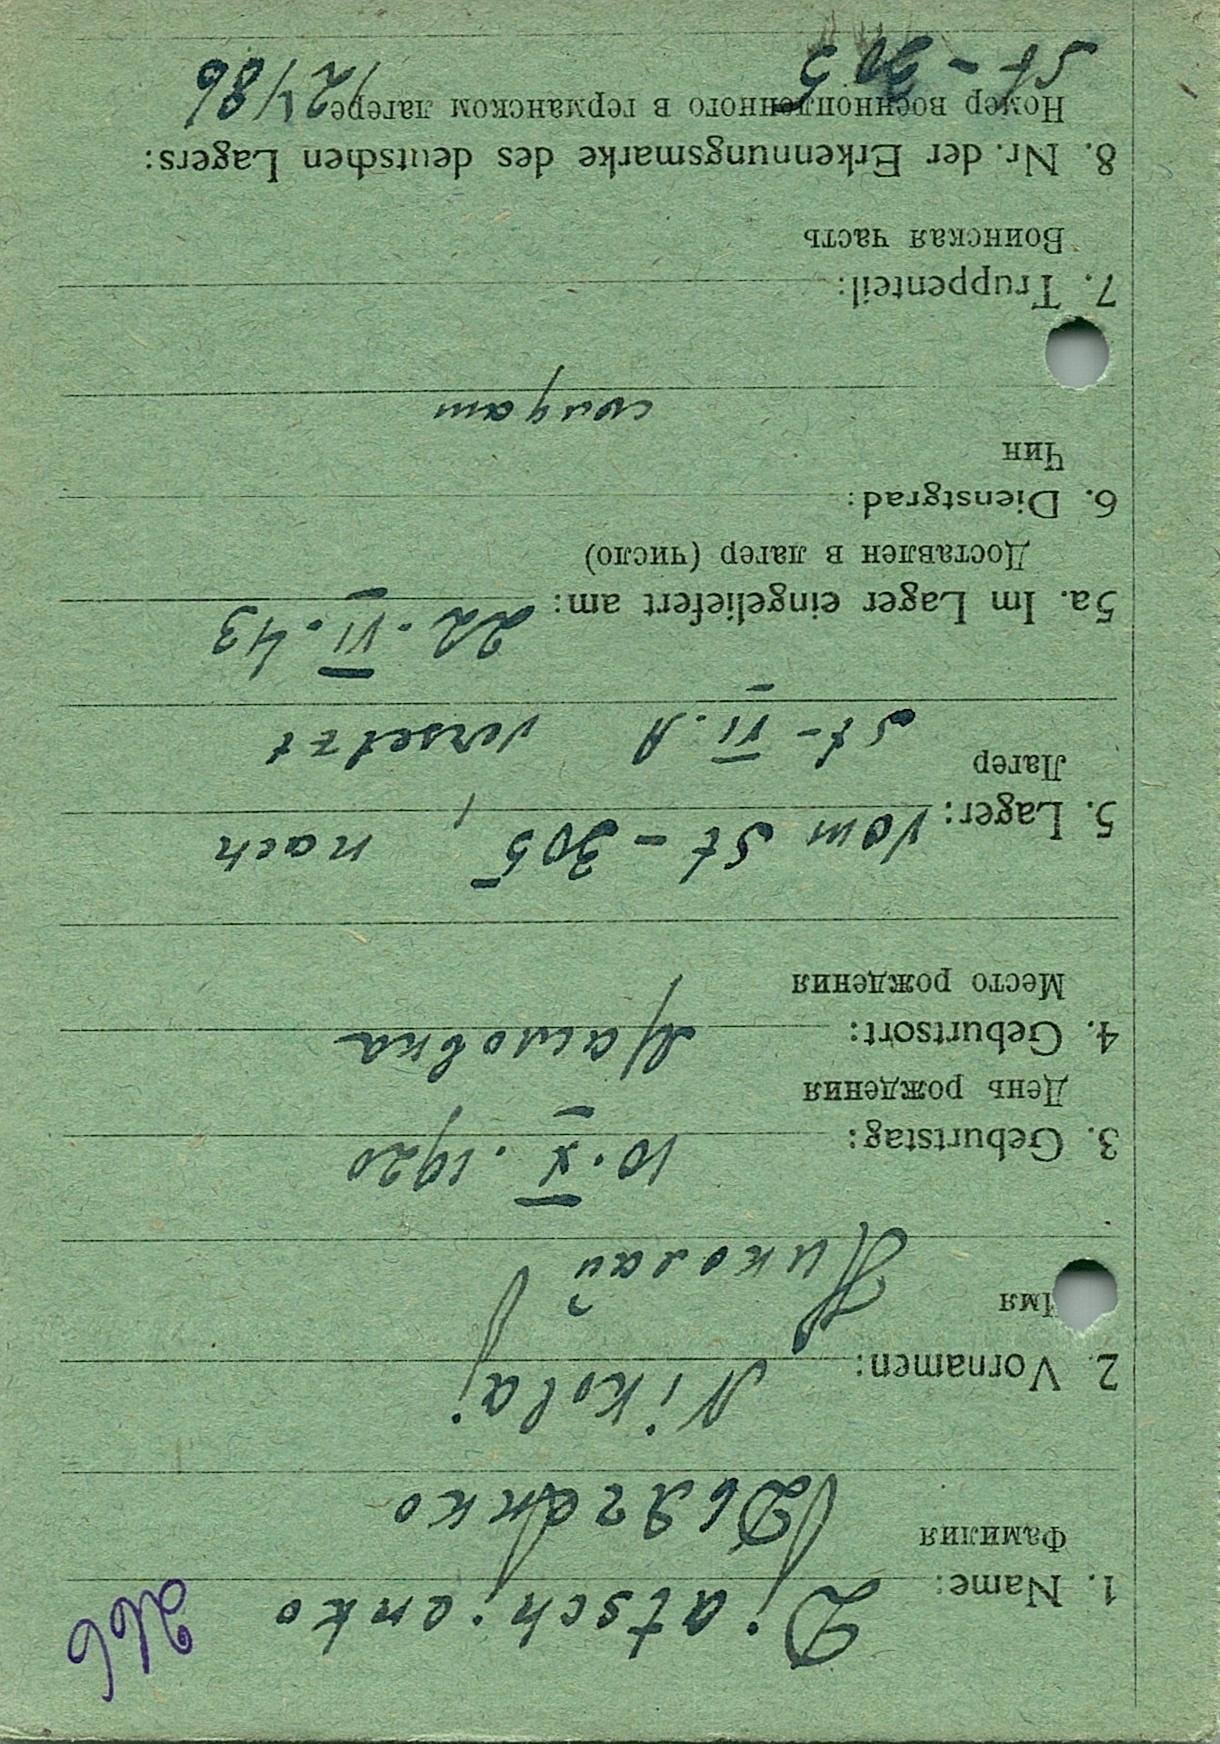 266
1. Name: Djatschenko
Фамилия Дьяченко
2. Vornamen: Nikolaj
Имя Николай
3. Geburtstag: 10.X.1920
День рождения
4. Geburtsort:
Место рождения
5. Lager: vom St-305, nach
Лагер St-VI.A versetzt
5a. Im Lager eingeliefert am: 22.VI.43
Доставлен в лагер (число)
6. Dienstgrad:
Чин
солдат
7. Truppenteil:
Воинская часть
8. Nr. der Erkennungsmarke des deutschen Lagers:
Номер военнопленного в германском лагере
St-305